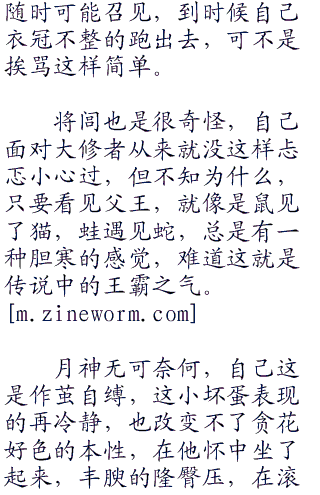 随时可能召见，到时候自己
衣冠不整的跑出去，可不是
挨骂这样简单。
将闾也是很奇怪，自己
面对大修者从来就没这样忐
忑小心过，但不知为什么，
只要看见父王，就像是鼠见
了猫，蛙遇见蛇，总是有一
种胆寒的感觉，难道这就是
传说中的王霸之气。
[m.zineworm.com]
月神无可奈何，自己这
是作茧自缚，这小坏蛋表现
的再冷静，也改变不了贪花
好色的本性，在他怀中坐了
起来，丰腴的隆臀压，在滚